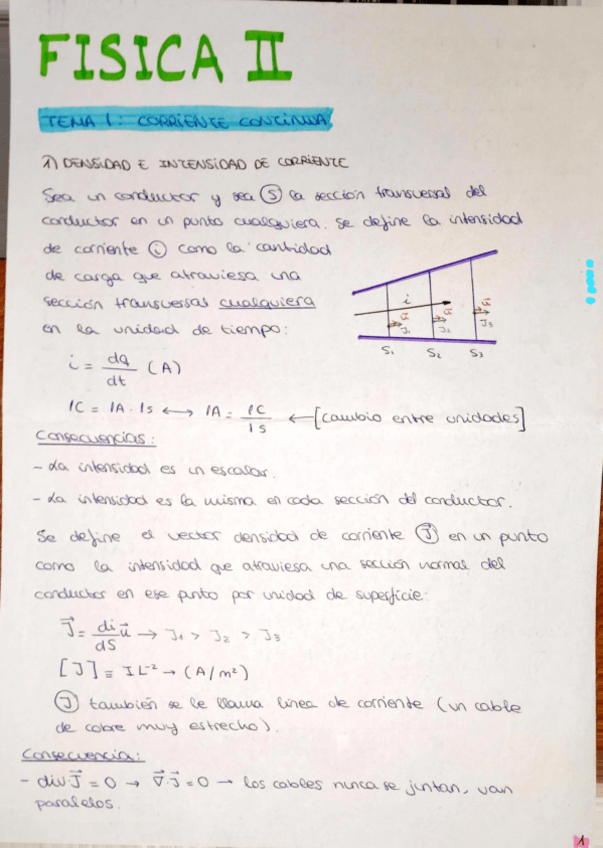 FISICA II
TEMA 1: CORRIENTE CONTINUA
1) DENSIDAD E INTENSIDAD DE CORRIENTE
Sea un conductor y sea Ⓢ la sección transversal del
conductor en un punto cualquiera. Se define la intensidad
de corriente ⓘ como la cantidad
de carga que atraviesa una
sección transversal cualquiera
en la unidad de tiempo:
i = dq/dt (A)
1C = 1A · 1s ⟷ 1A = 1C/1s ← [cambio entre unidades]
i
u⃗ u⃗ u⃗
J₁ J₂ J₃
S₁ S₂ S₃
Consecuencias:
- La intensidad es un escalar.
- La intensidad es la misma en cada sección del conductor.
Se define el vector densidad de corriente J⃗ en un punto
como la intensidad que atraviesa una sección normal del
conductor en ese punto por unidad de superficie:
J⃗ = di/dS u⃗ → J₁ > J₂ > J₃
[J] ≡ I L⁻² → (A/m²)
Ⓙ también se le llama línea de corriente (un cable
de cobre muy estrecho).
Consecuencia:
- div·J⃗ = 0 → ∇⃗·J⃗ = 0 → los cables nunca se juntan, van
paralelos.
1